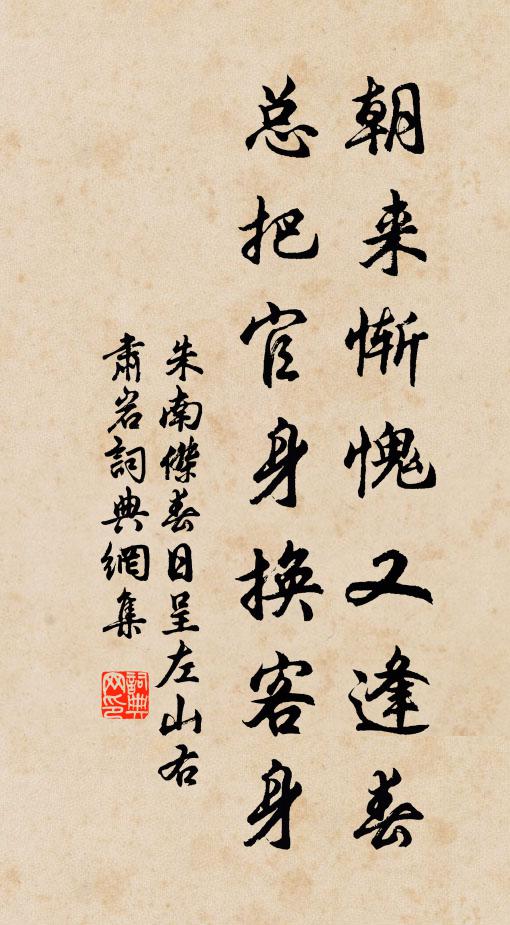 朝来惭愧又逢春
总把官身换客身
朱南傑春日呈左山右
肃岩詞典網集
詞典网印